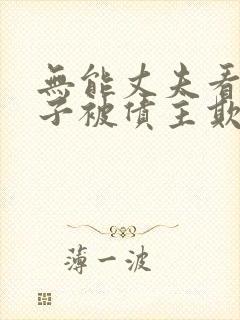 無能丈夫看
子被債主欺
薄一波